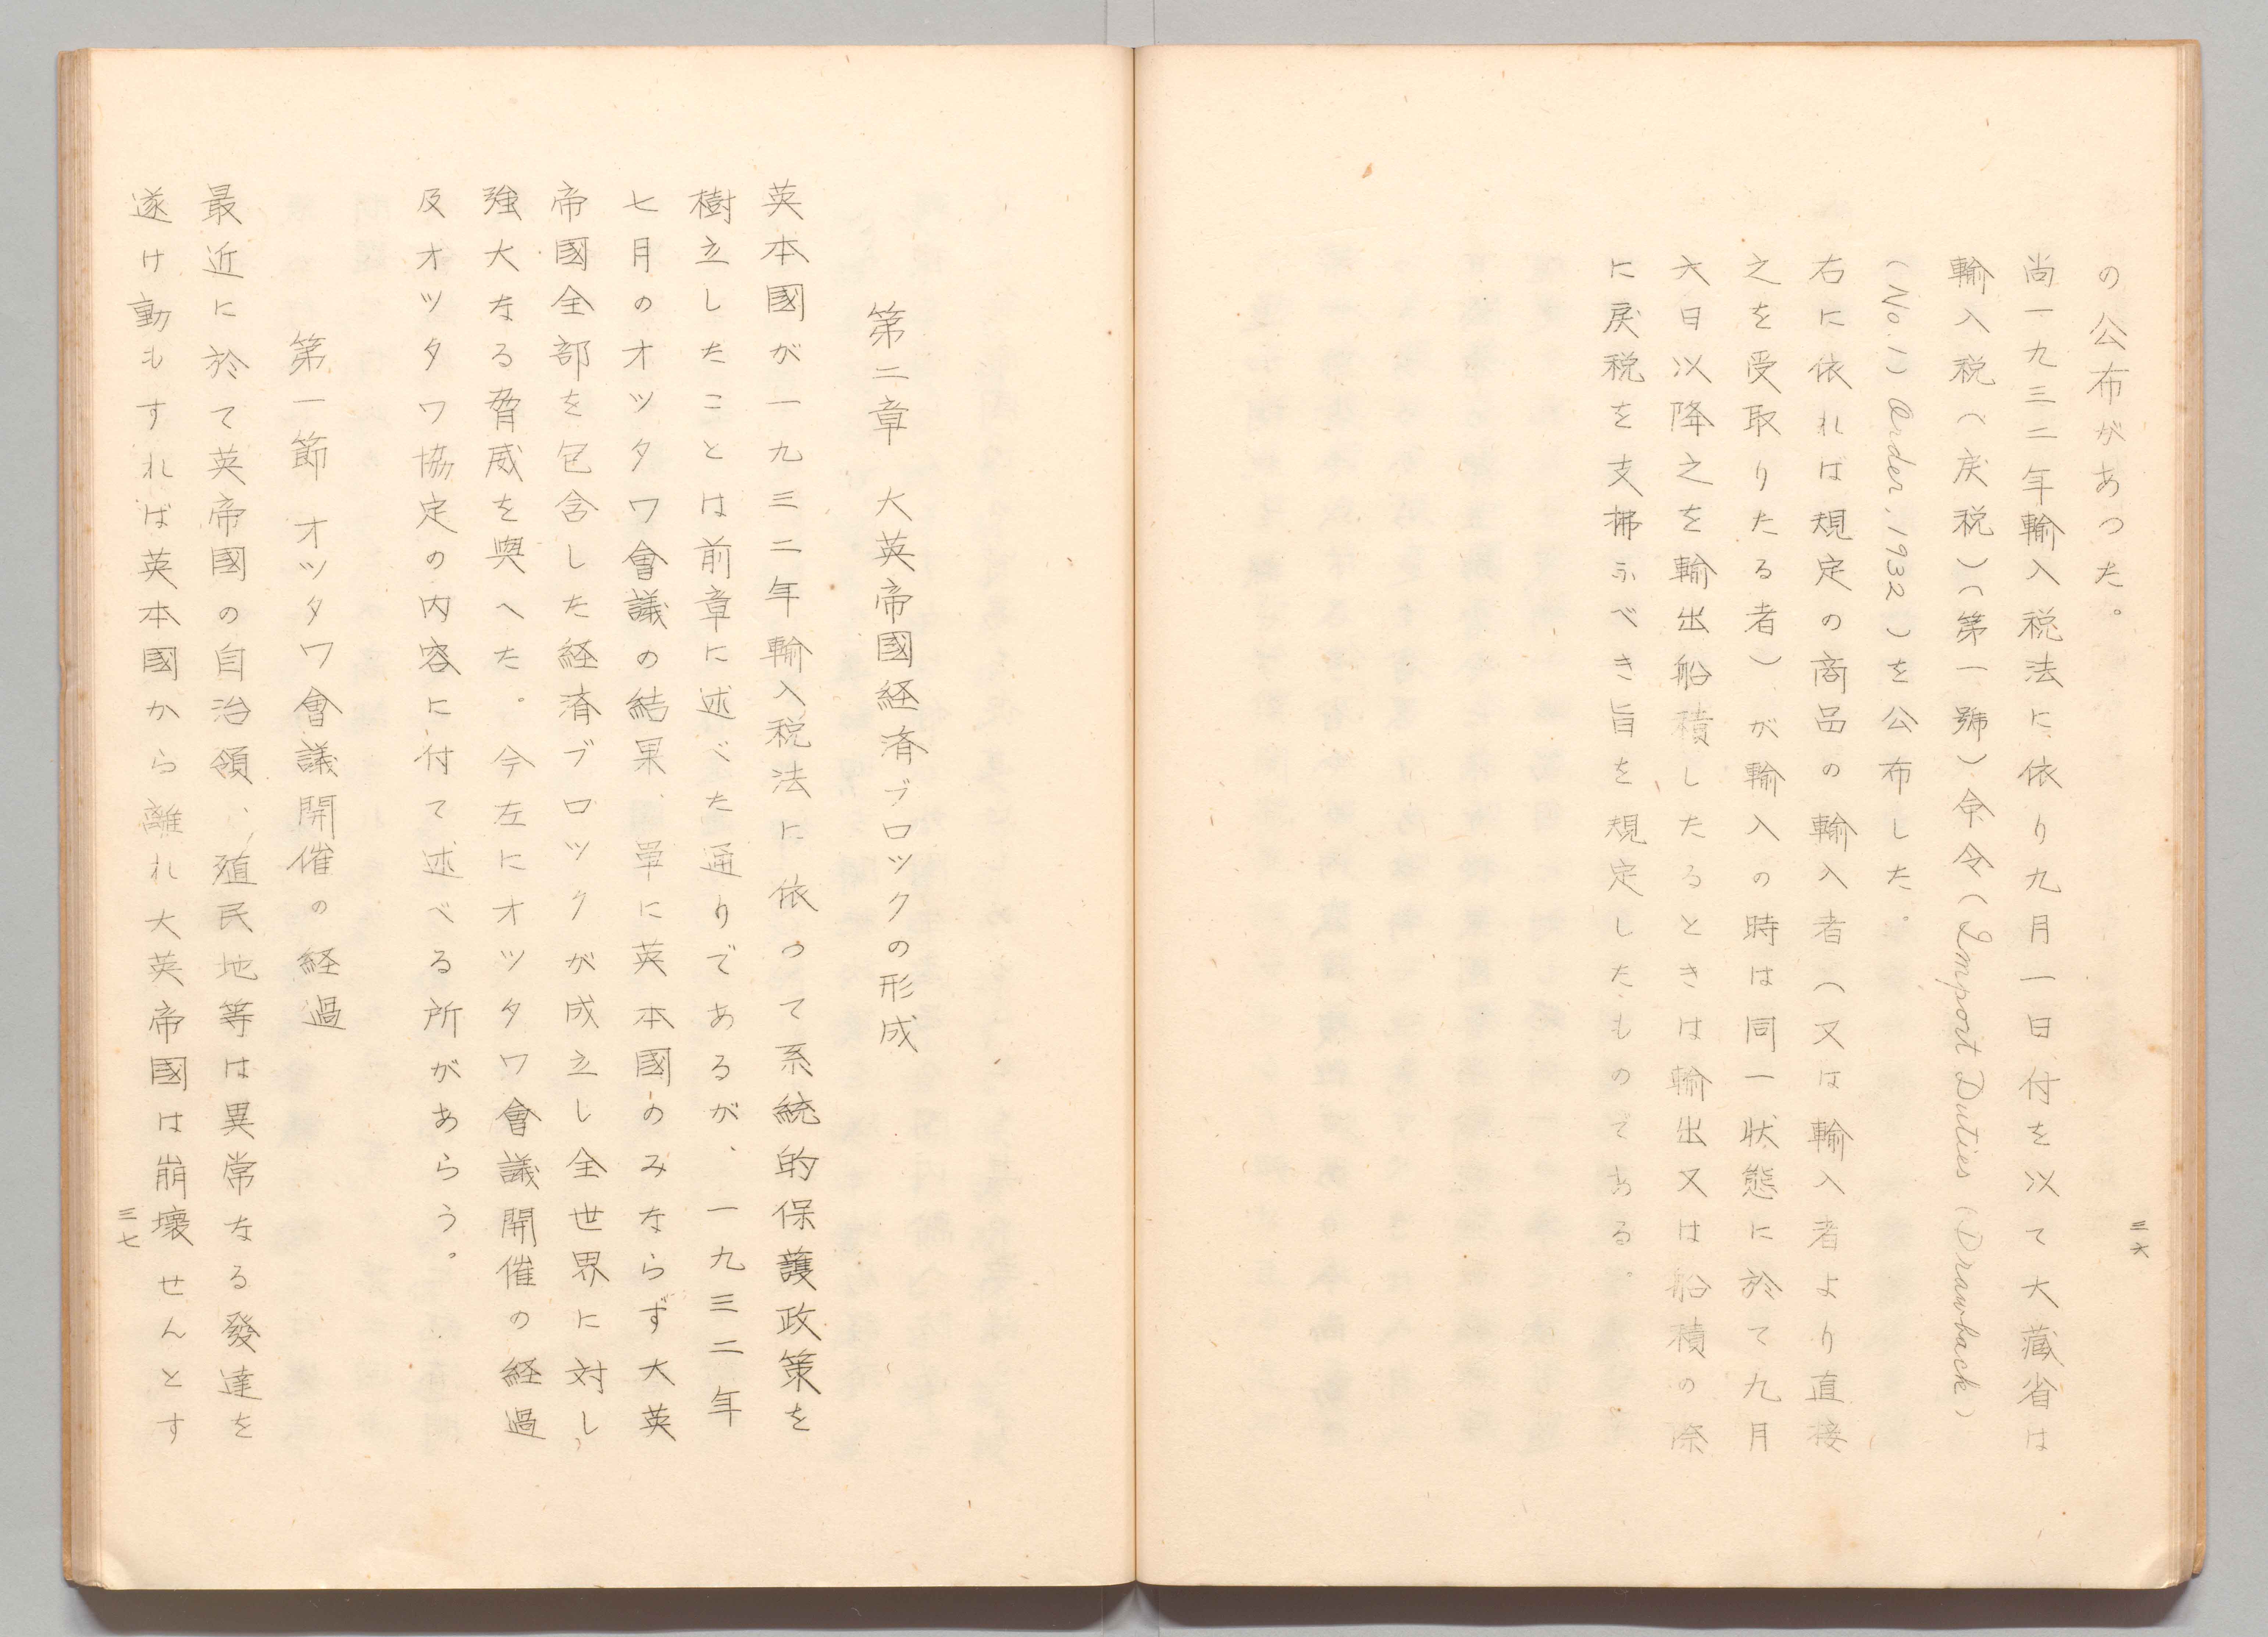 の公布があつた。
尚一九三二年輸入税法に依り九月一日付を以て大藏省は
輸入税(戻税)(第一號)命令(Import Duties (Drawback)
(No.1) Order, 1932)を公布した。
右に依れば規定の商品の輸入者(又は輸入者より直接
之を受取りたる者)が輸入の時は同一状態に於て九月
六日以降之を輸出船積したるときは輸出又は船積の際
に戻税を支拂ふべき旨を規定したものである。
三六
第二章 大英帝國経済ブロックの形成
英本國が一九三二年輸入税法に依つて系統的保護政策を
樹立したことは前章に述べた通りであるが、一九三二年
七月のオツタワ會議の結果、單に英本國のみならず大英
帝國全部を包含した経済ブロツクが成立し全世界に対し
強大なる脅威を與へた。今左にオツタワ會議開催の経過
及オツタワ協定の内容に付て述べる所があらう。
第一節 オツタワ會議開催の経過
最近に於て英帝國の自治領、殖民地等は異常なる發達を
遂け動もすれば英本國から離れ大英帝國は崩壞せんとす
三七